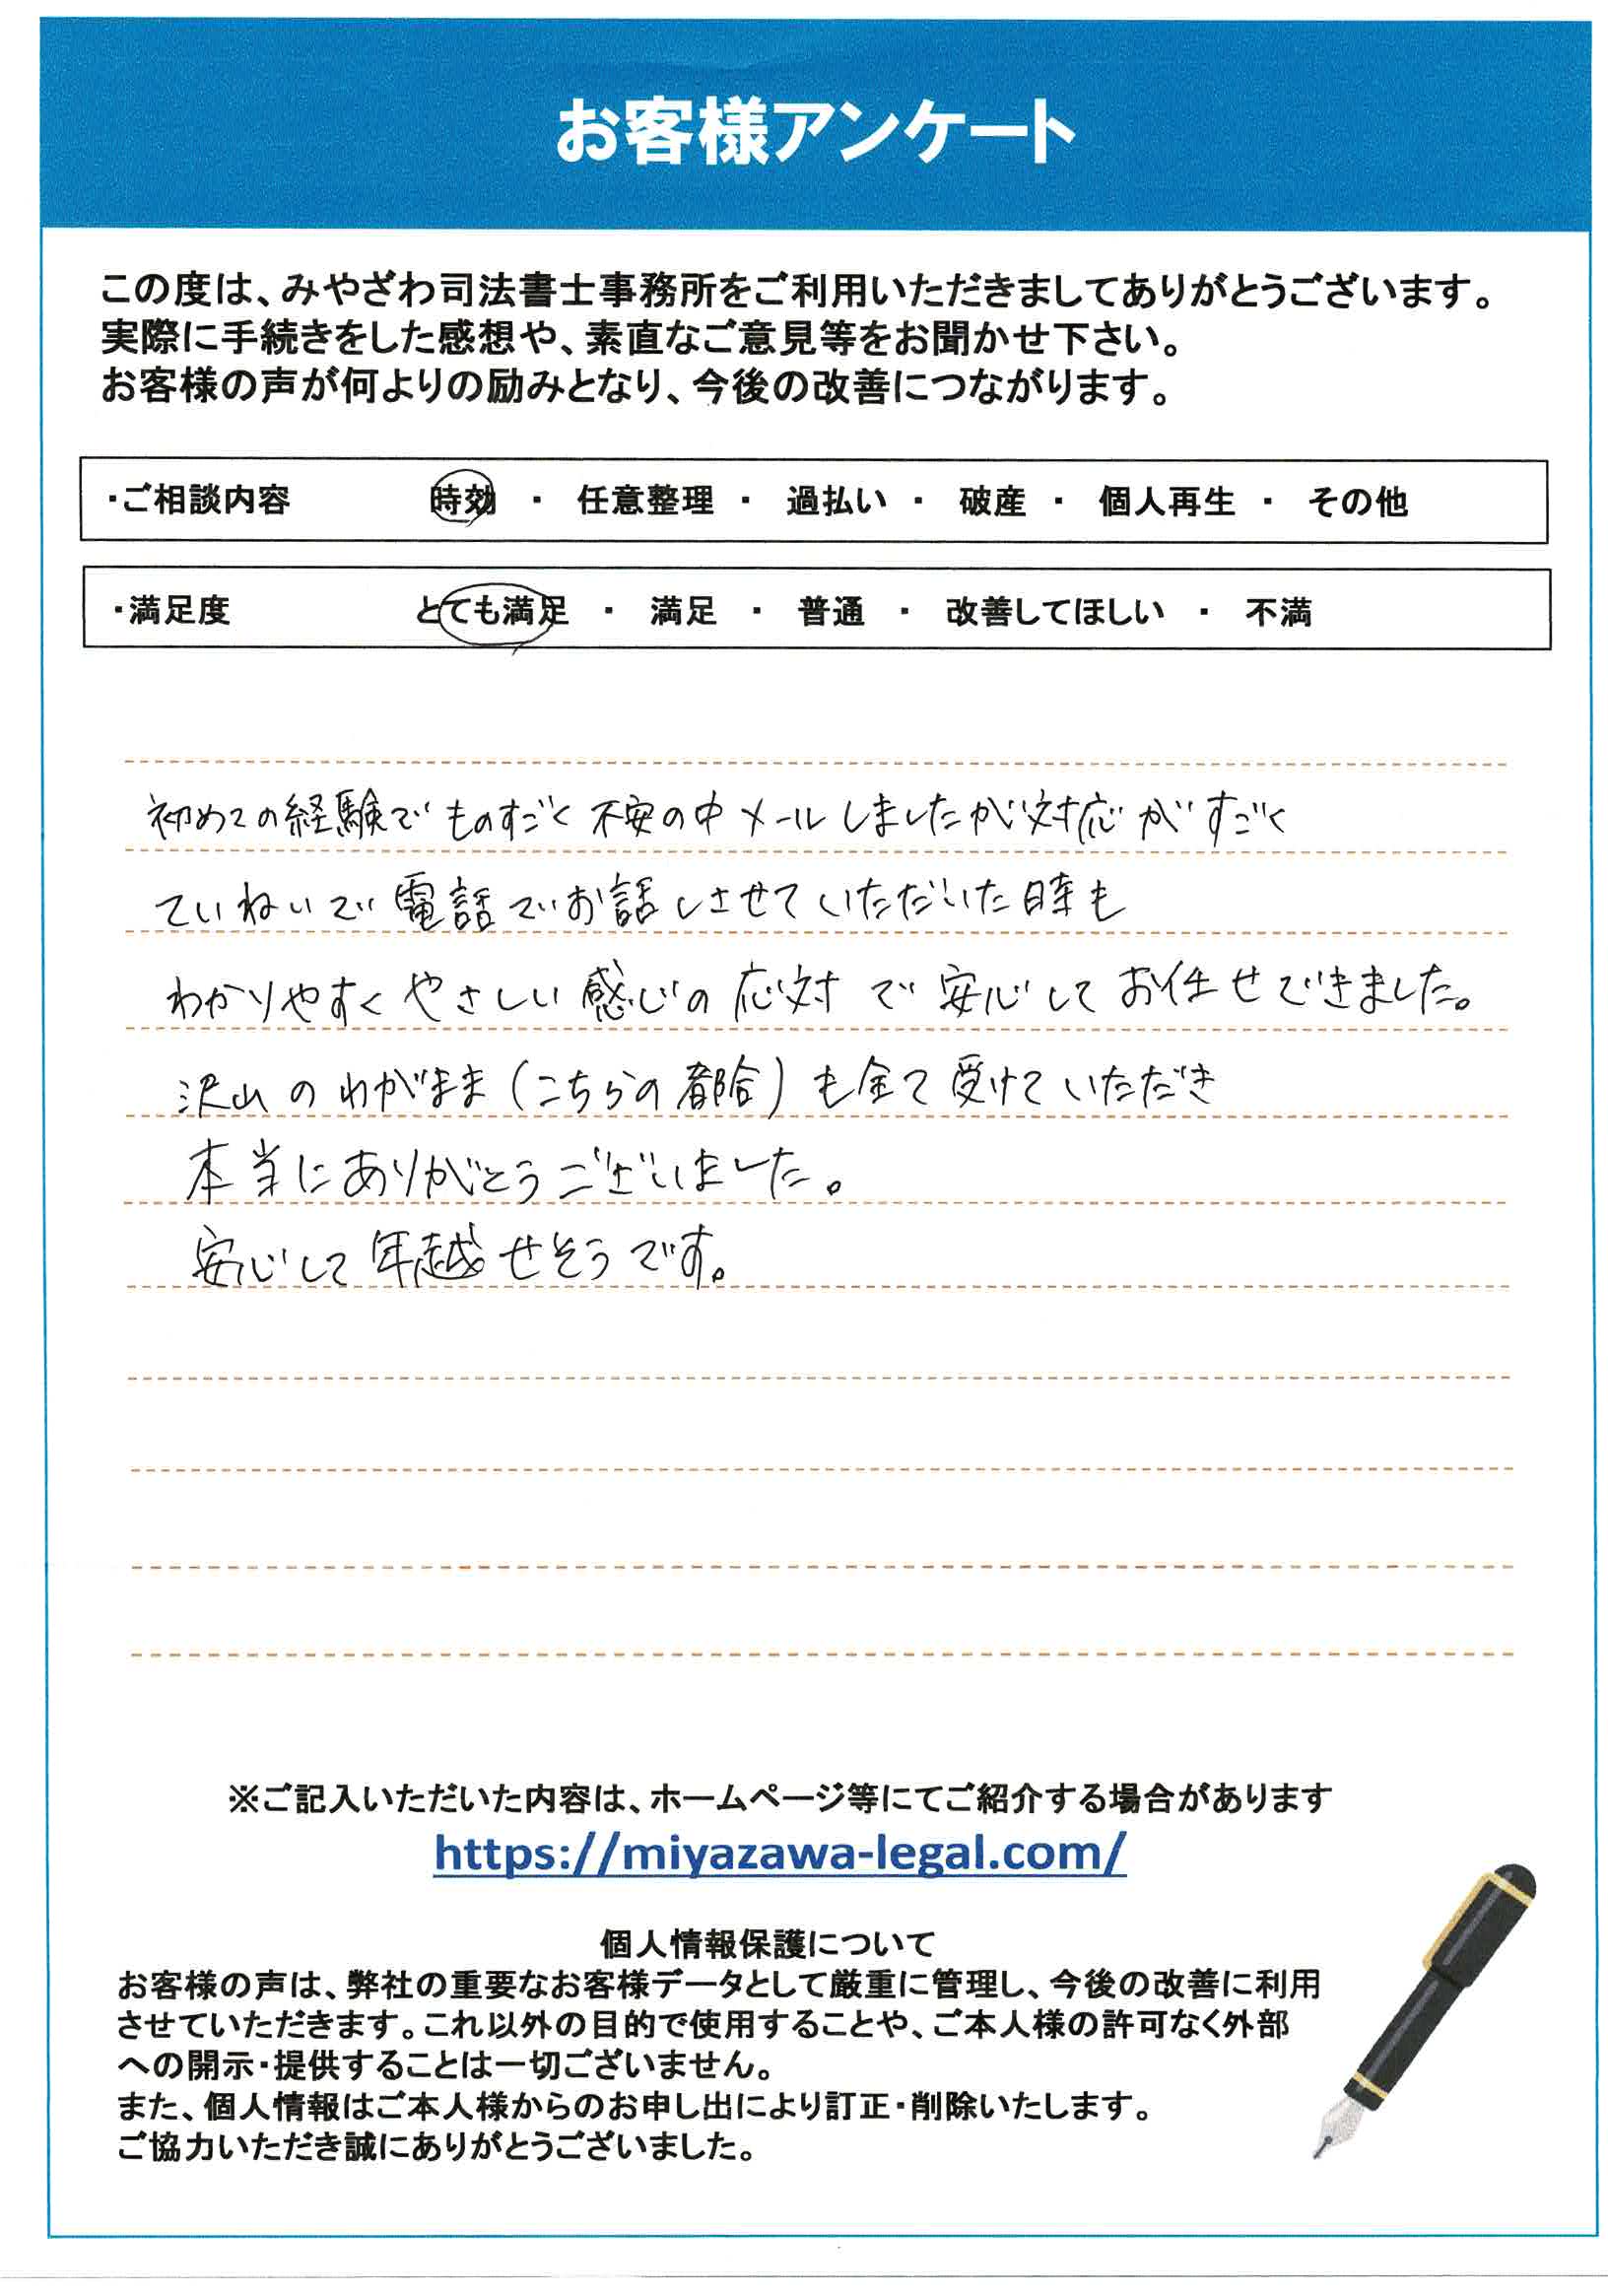 お客様アンケート
この度は、みやざわ司法書士事務所をご利用いただきましてありがとうございます。
実際に手続きをした感想や、素直なご意見等をお聞かせ下さい。
お客様の声が何よりの励みとなり、今後の改善につながります。
・ご相談内容 時効 ・ 任意整理 ・ 過払い ・ 破産 ・ 個人再生 ・ その他
・満足度 とても満足 ・ 満足 ・ 普通 ・ 改善してほしい ・ 不満
初めての経験でものすごく不安の中メールしましたが対応がすごく
ていねいで電話でお話しさせていただいた時も
わかりやすくやさしい感じの応対で安心してお任せできました。
沢山のわがまま(こちらの都合)も全て受けていただき
本当にありがとうございました。
安心して年越せそうです。
※ご記入いただいた内容は、ホームページ等にてご紹介する場合があります
https://miyazawa-legal.com/
個人情報保護について
お客様の声は、弊社の重要なお客様データとして厳重に管理し、今後の改善に利用
させていただきます。これ以外の目的で使用することや、ご本人様の許可なく外部
への開示・提供することは一切ございません。
また、個人情報はご本人様からのお申し出により訂正・削除いたします。
ご協力いただき誠にありがとうございました。